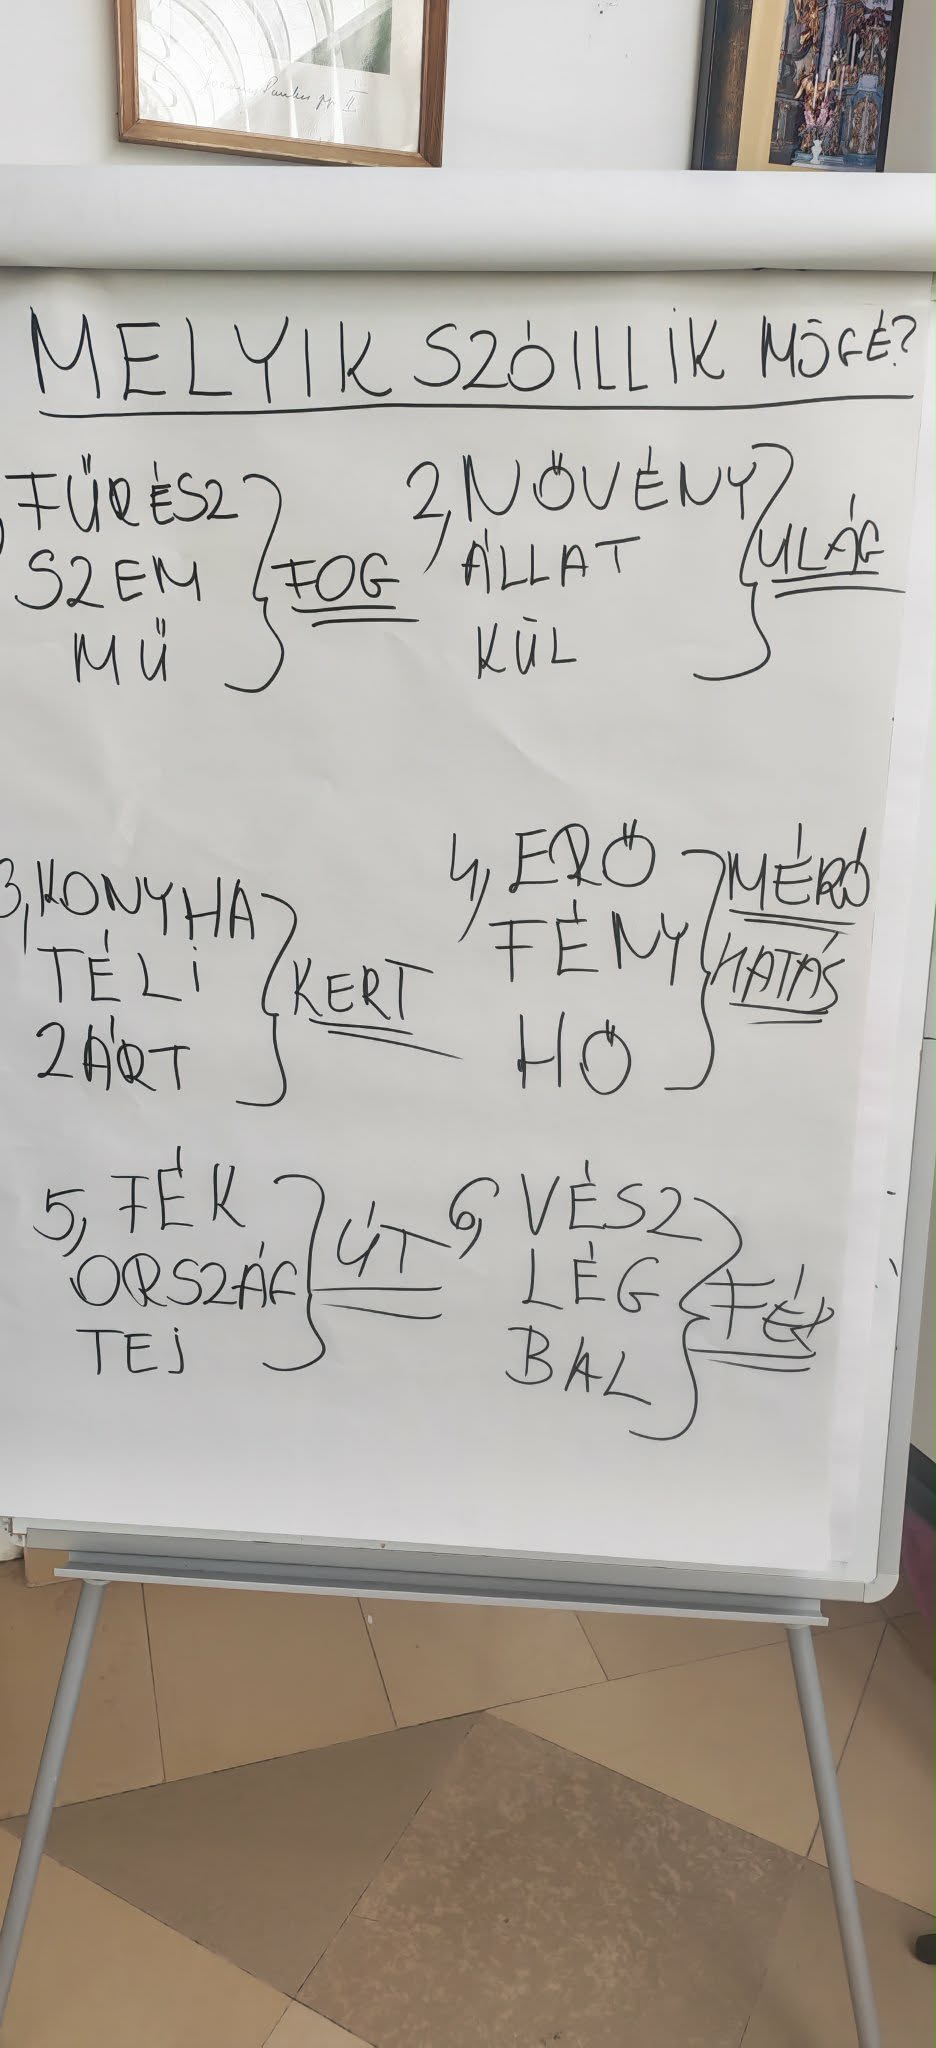 MELYIK SZÓ ILLIK MÖGÉ?
FŰRÉSZ
SZEM
MŰ
FOG
2, NÖVÉNY
ÁLLAT
KÜL
VILÁG
3, KONYHA
TÉLI
ZÁRT
KERT
4, ERŐ
FÉNY
HŐ
MÉRŐ
HATÁS
5, FÉK
ORSZÁG
TEJ
ÚT
6, VÉSZ
LÉG
BAL
FÉK